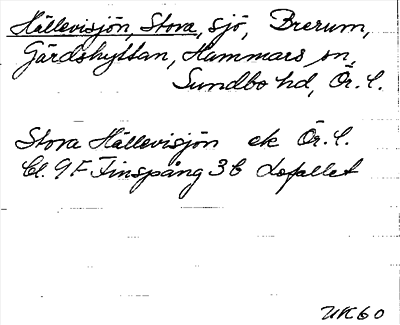 Hällevisjön, Stora, sjö, Brerum,
Gärdshyttan, Hammars sn,
Sundbo hd, Ör. l.
Stora Hällevisjön ek Ör. l.
bl. 9F Finspång 3b Lofallet
UK60